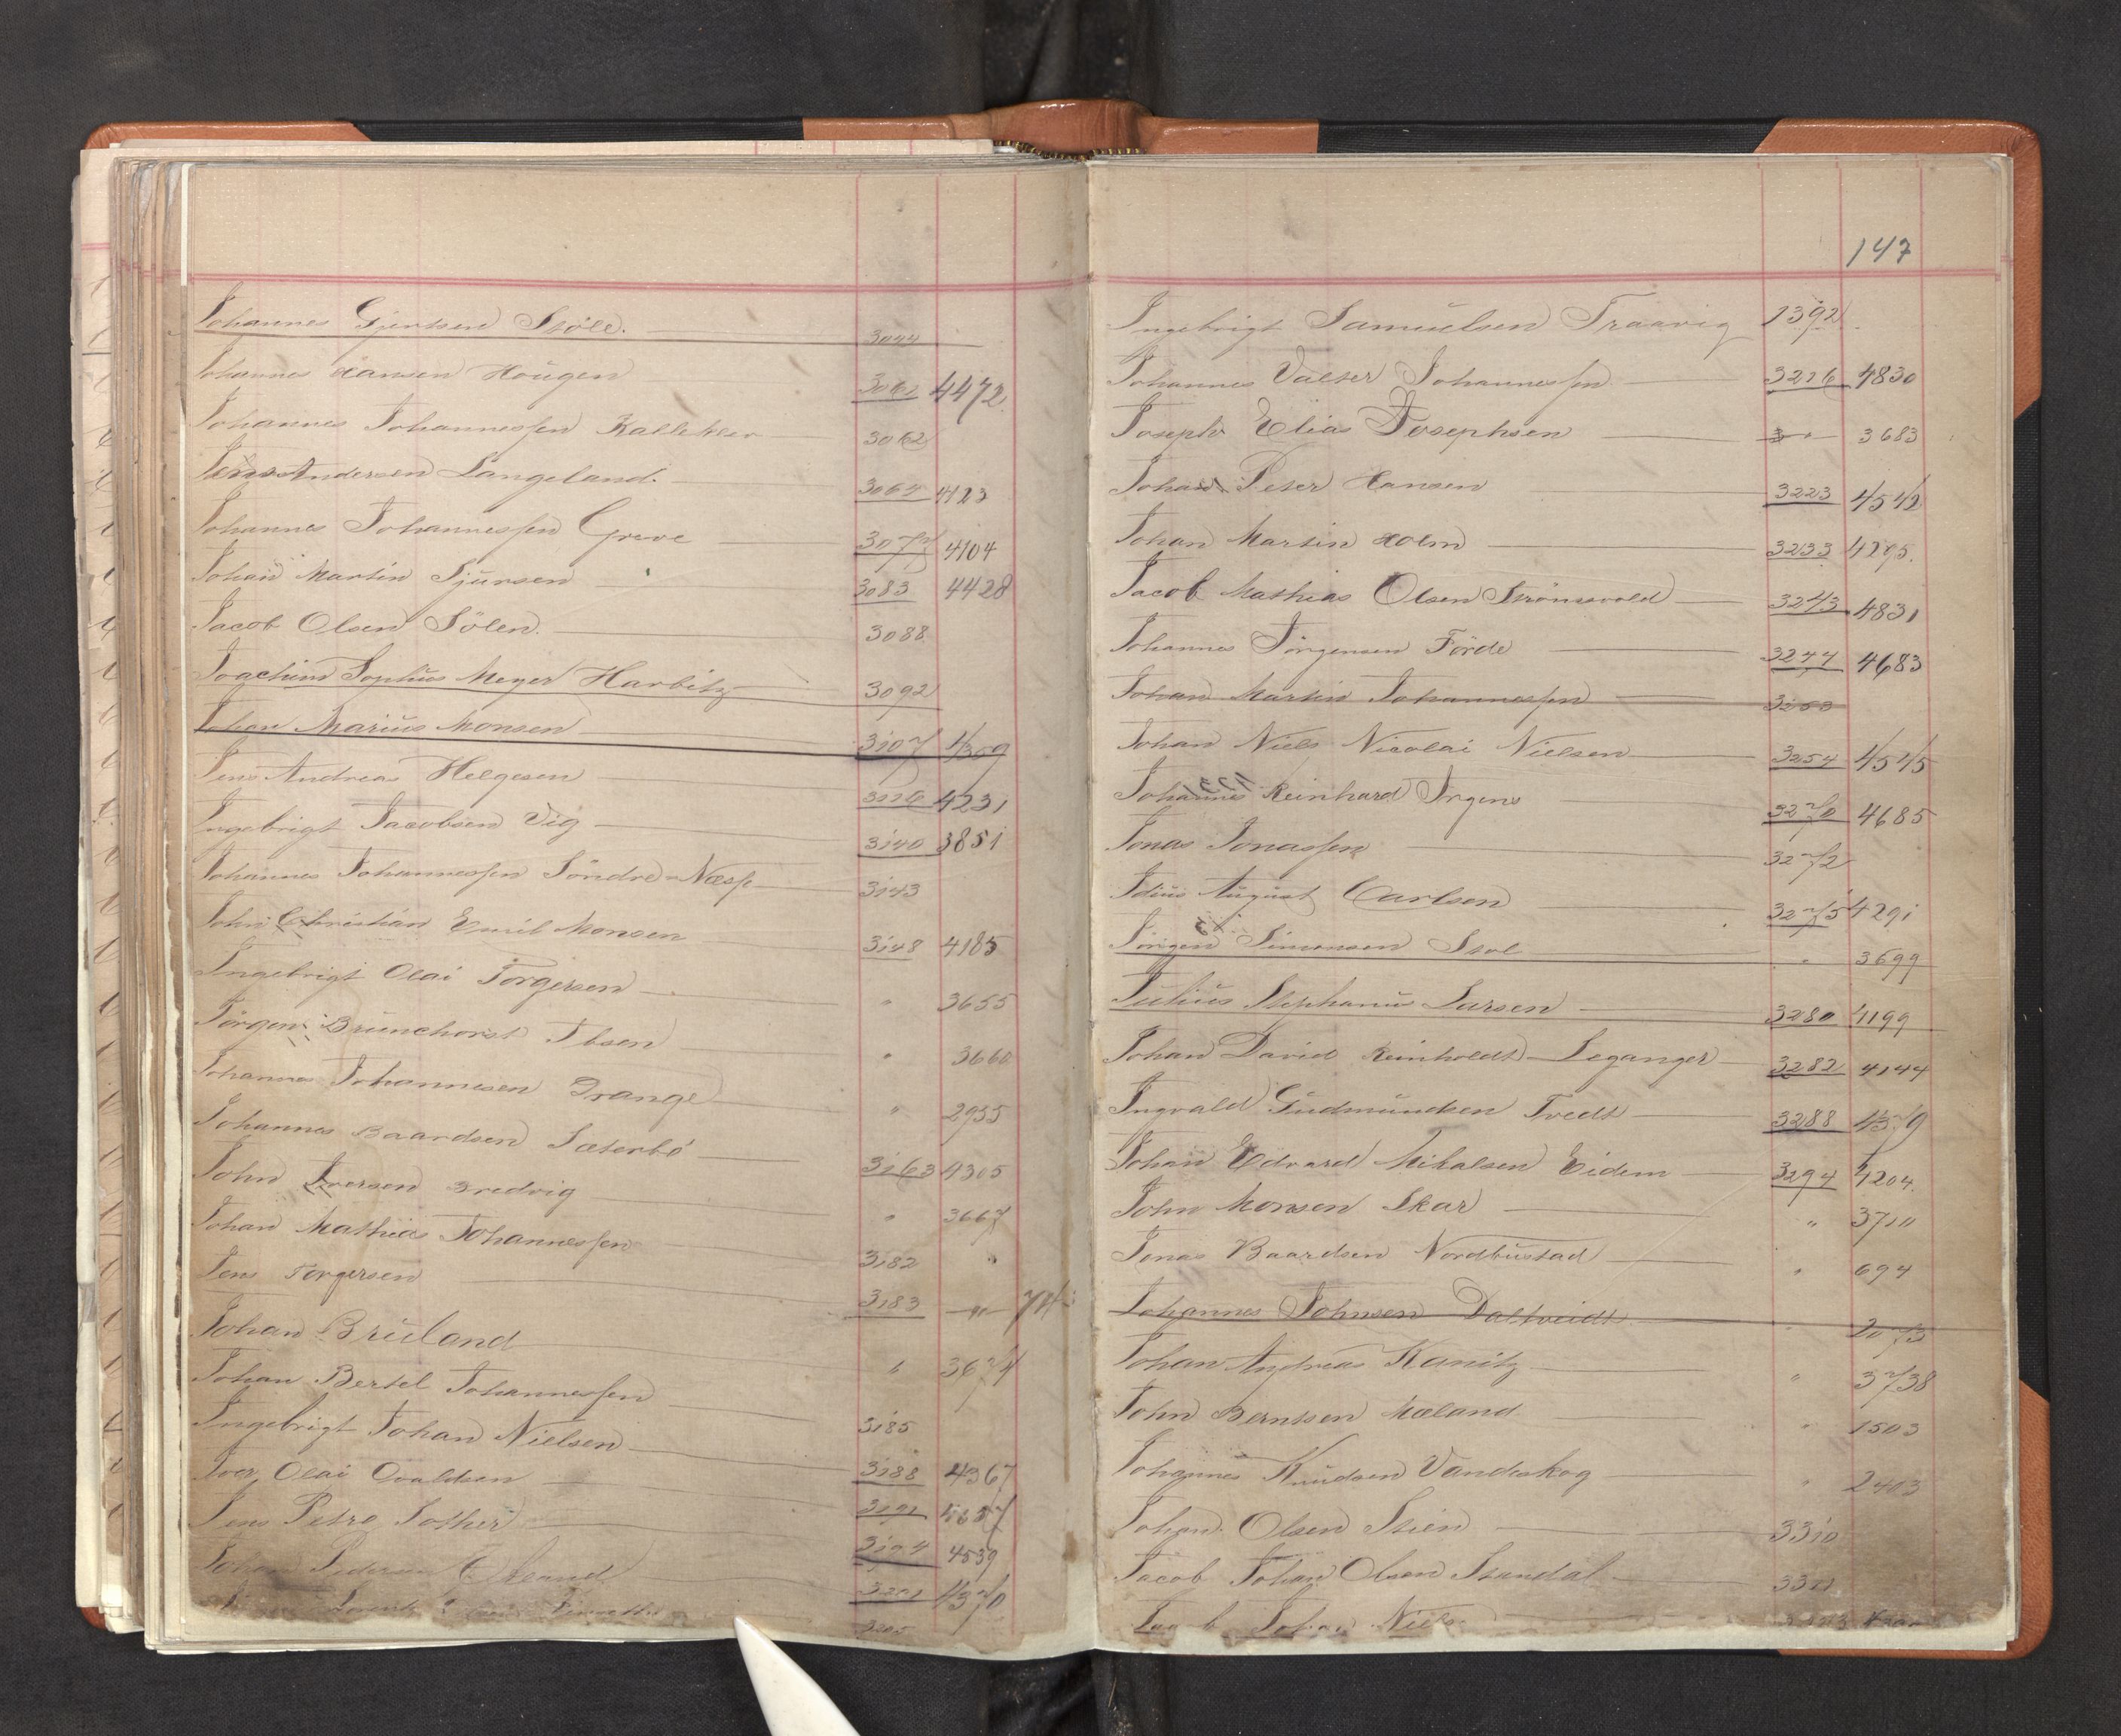 Johannes Gjertsen Støle. 3044
Johannes Hansen Hougen 3061 4472
Johannes Johannessen Kallekler 3062
Jens Andersen Langeland. 3064 4123
Johannes Johannessen Greve 3077 4104
Johan Martin Sjursen 3083 4428
Jacob Olsen Sölen. 3088
Joachim Sophus Meyer Harbitz 3092
Johan Marius Monsen 3107 4309
Jens Andreas Helgesen 3116 4231
Ingebrigt Jacobsen Vig 3140 3851
Johannes Johannessen Söndre-Næsse 3143
John Christian Emil Monsen 3148 4185
Ingebrigt Olai Torgersen " 3655
Jörgen Brunchorst Ibsen " 3660
Johannes Johannesen Drange " 2955
Johannes Baardsen Sæterbö 3163 4305
John Iversen Bredvig " 3667
Johan Mathias Johannessen 3182 "
Jens Torgersen 3183 "
Johan Bruland " 3674
Johan Bertel Johannessen 3185
Ingebrigt Johan Nielsen 3188 4367
Iver Olai Osvaldsen 3191
Jens Petre Sother 3194 4539
Johan Pedersen 3201 4370
3205
147
Ingebrigt Samuelsen Traavig 1392
Johannes Valser Johannessen 3216 4830
Joseph Elias Josephsen 3683
Johan Peter Hansen 3223 4542
Johan Martin Holm 3233 4295.
Jacob Mathias Olsen Strömsvold 3243 4831
Johannes Jörgensen Förde 3244 4683
Johan Martin Johannessen 3253
Johan Niels Nicolai Nielsen 3254 4545
Johannes Reinhard Irgens 3270 4685
Jonas Jonassen 3272
Idius August Carlsen 3275 4291
Jörgen Simonsen Stol " 3699
Julius Stephanus Larsen 3280 4199
Johan David Reinholdt Leganger 3282 4144
Ingvald Gudmundsen Tvedt 3288 4379
Johan Edvard Mikalsen Eidem 3294 4204.
John Monsen Skar " 3710
Jonas Baardsen Nordbustad " 694
Johannes Johnsen Daltveidt " 2073
Johan Andreas Kanitz " 3738
John Berntsen Mæland " 1503
Johannes Knudsen Vandeskog " 2403
Johan Olsen Stien 3310
Jacob Johan Olsen Standal 3311
Jacob Johan Niels